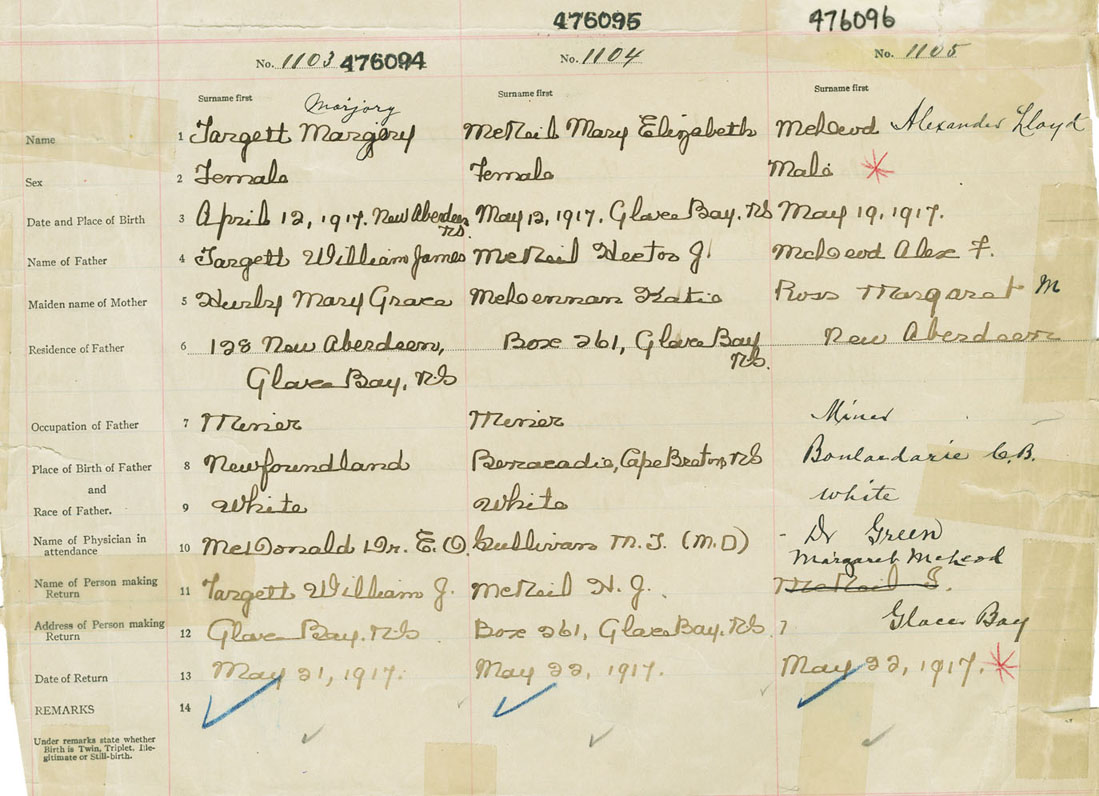 476095 476096
No. 1103 476094 No. 1104 No. 1105
Surname first Surname first Surname first
Marjory
Name 1 Targett Margery McNeil Mary Elizabeth McLeod Alexander Lloyd
Sex 2 Female Female Male
Date and Place of Birth 3 April 12, 1917. New Aberdeen N.S. May 12, 1917. Glace Bay. N.S May 19, 1917.
Name of Father 4 Targett William James McNeil Hector J. McLeod Alex F.
Maiden name of Mother 5 Hurly Mary Grace McLennan Katie Ross Margaret M
Residence of Father 6 128 New Aberdeen, Box 261, Glace Bay New Aberdeen
Glace Bay, N.S N.S.
Occupation of Father 7 Minier Minier Miner
Place of Birth of Father 8 Newfoundland Berracadie, Cape Breton, N.S Boulardarie C.B.
and
Race of Father. 9 White White White
Name of Physician in attendance 10 McDonald Dr. E. O. Sullivan M. T. (M.D) Dr Green
Margaret McLeod
Name of Person making Return 11 Targett William J. McNeil H. J. McNeil S.
Address of Person making Return 12 Glace Bay. N.S. Box 261, Glace Bay. N.S. Glace Bay
Date of Return 13 May 21, 1917. May 22, 1917. May 22, 1917.
REMARKS 14
Under remarks state whether
Birth is Twin, Triplet, Ille-
gitimate or Still-birth.